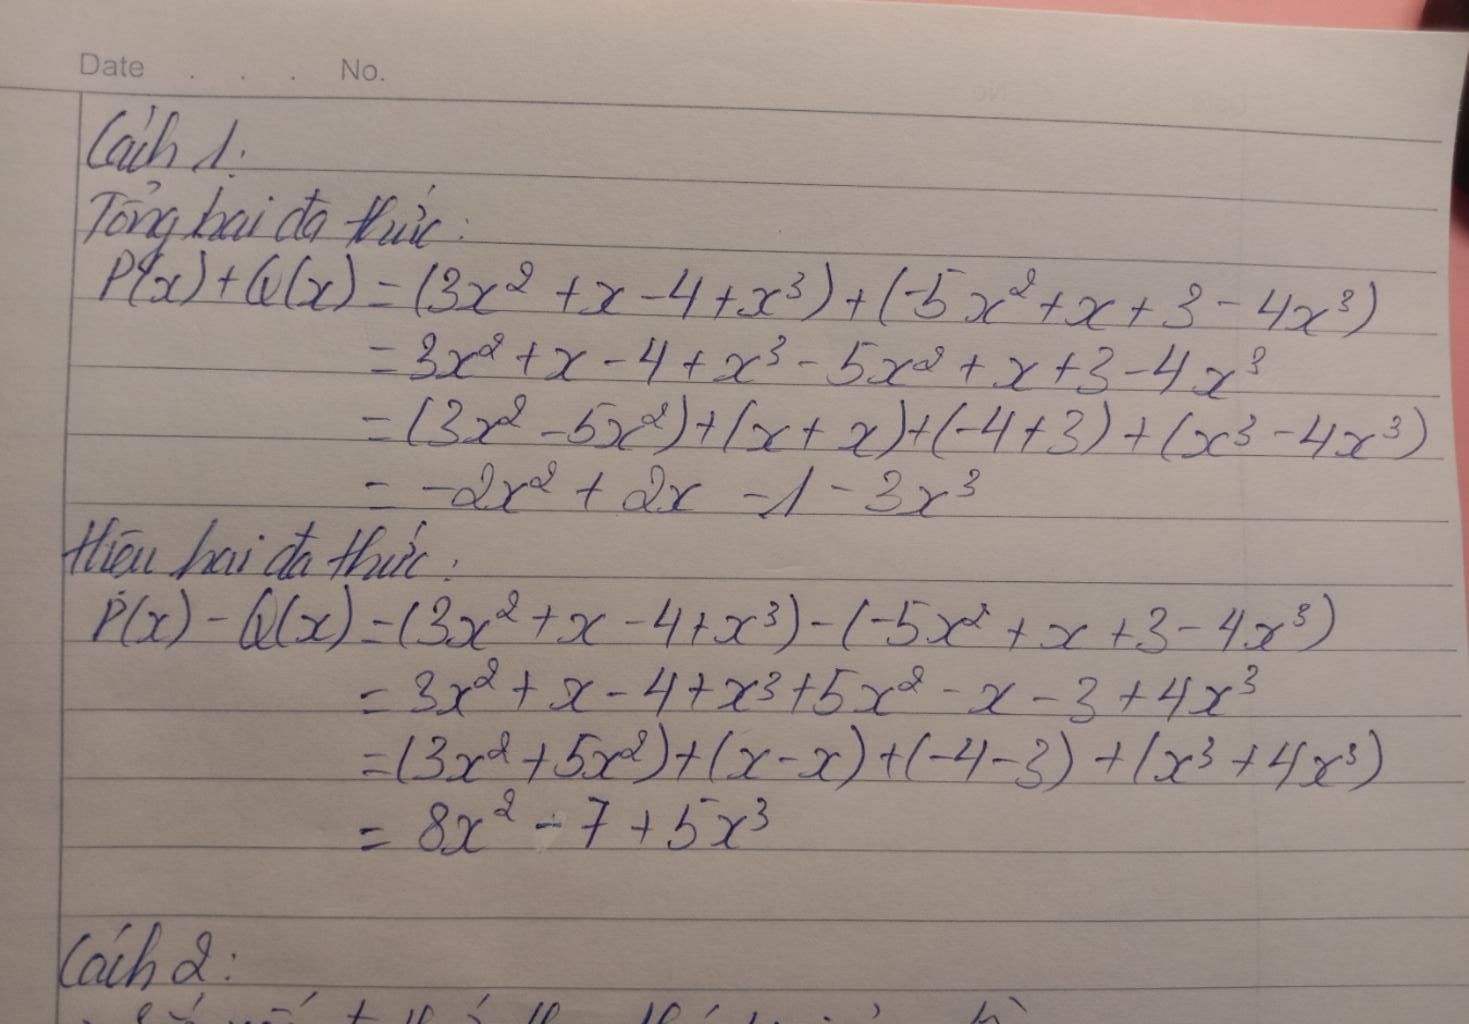 Date . . . No.
Cách 1:
Tổng hai đa thức:
P(x) + Q(x) = (3x² + x - 4 + x³) + (-5x² + x + 3 - 4x³)
= 3x² + x - 4 + x³ - 5x² + x + 3 - 4x³
= (3x² - 5x²) + (x + x) + (-4 + 3) + (x³ - 4x³)
= -2x² + 2x - 1 - 3x³
Hiệu hai đa thức:
P(x) - Q(x) = (3x² + x - 4 + x³) - (-5x² + x + 3 - 4x³)
= 3x² + x - 4 + x³ + 5x² - x - 3 + 4x³
= (3x² + 5x²) + (x - x) + (-4 - 3) + (x³ + 4x³)
= 8x² - 7 + 5x³
Cách 2: